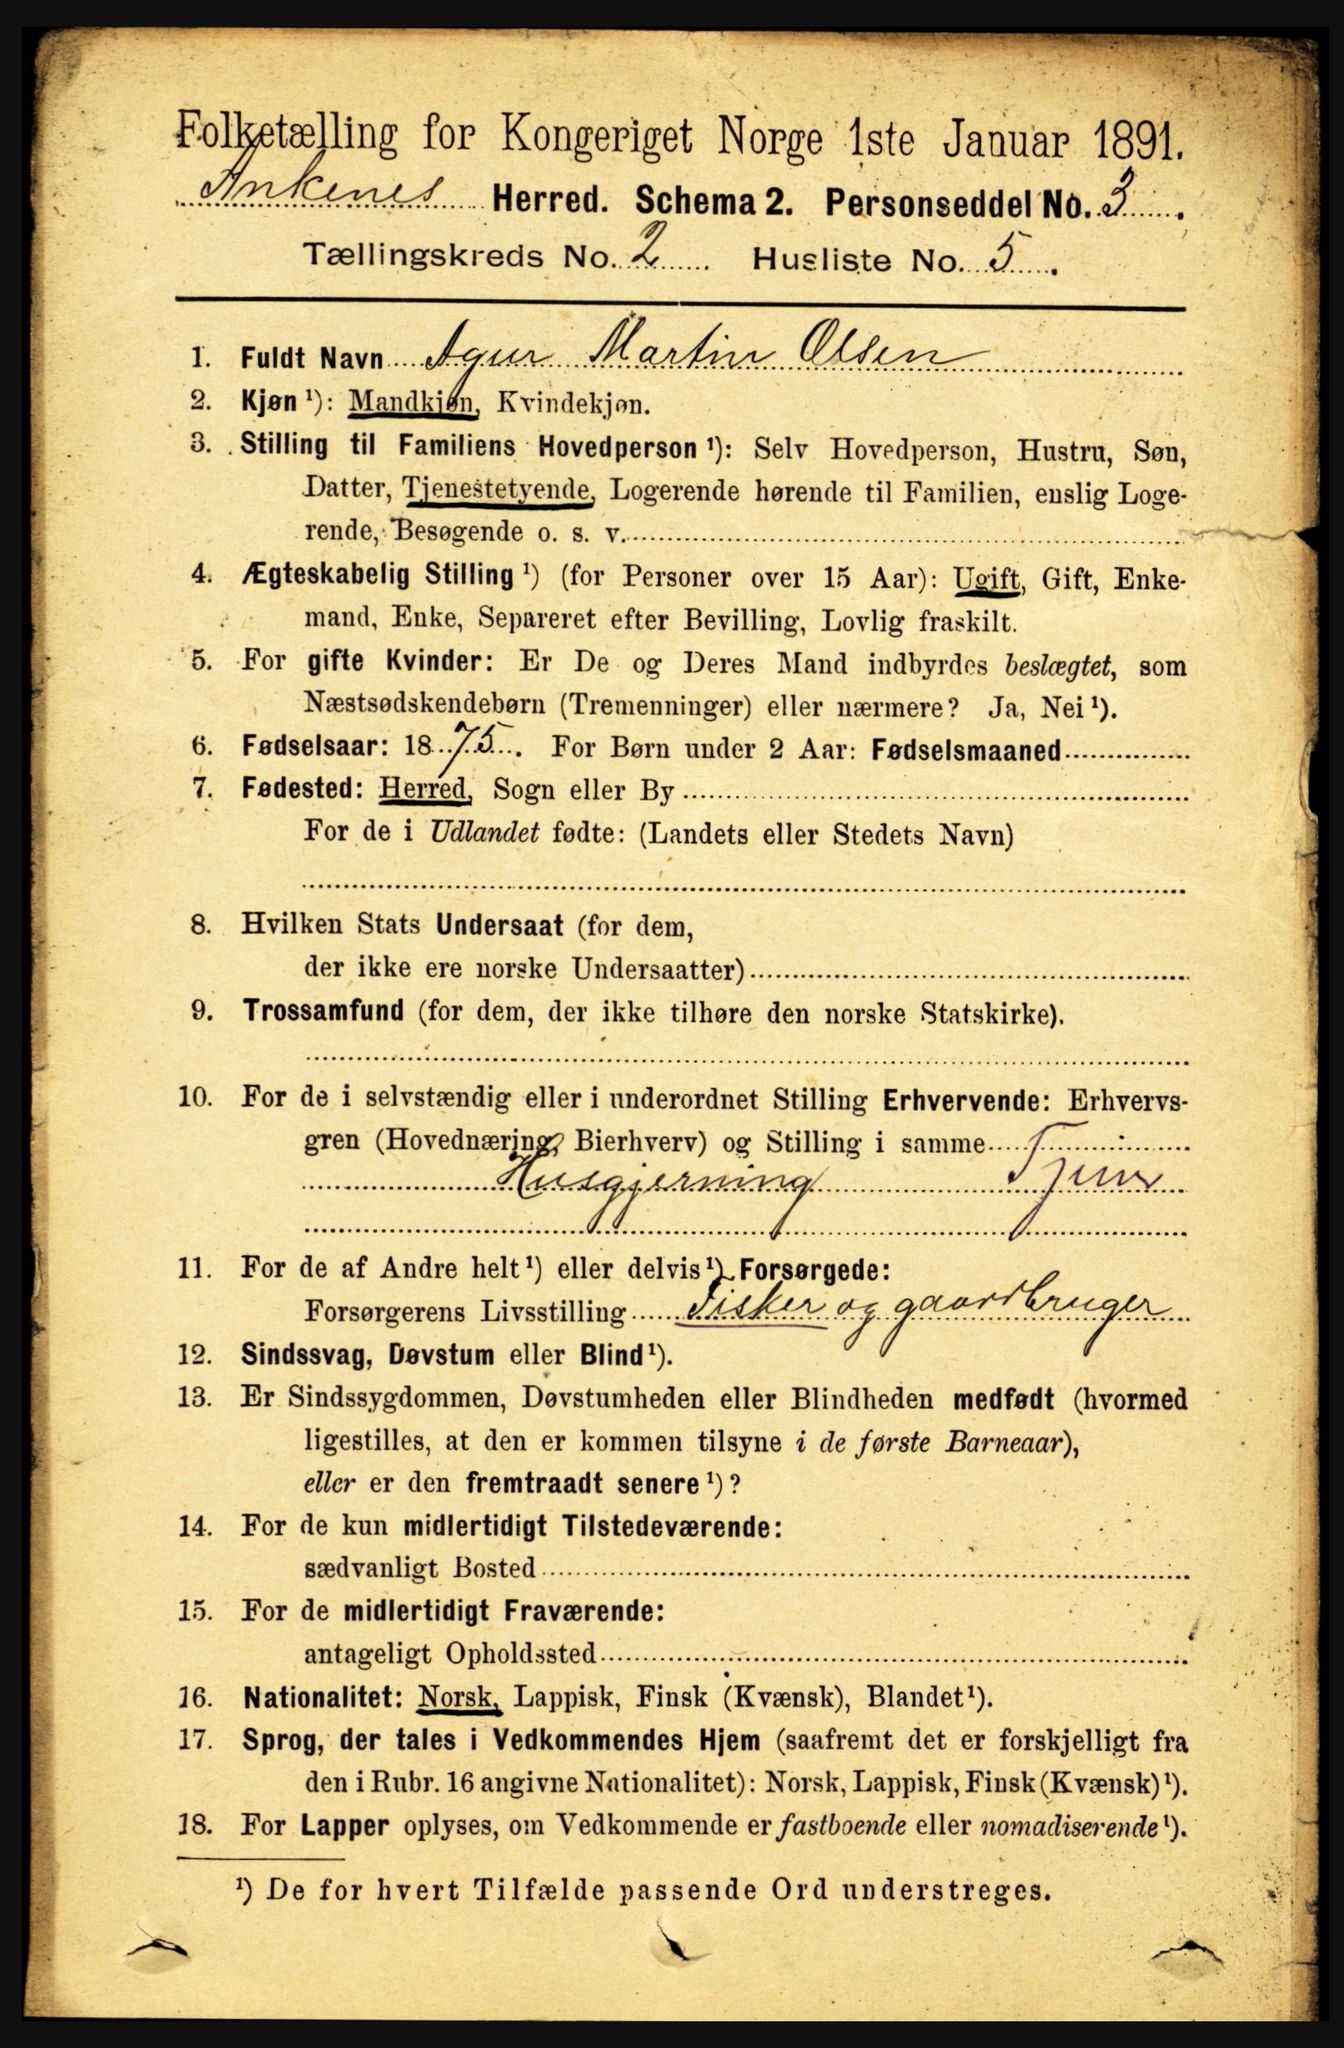 Folketælling for Kongeriget Norge 1ste Januar 1891.
Ankenes Herred. Schema 2. Personseddel No. 3.
Tællingskreds No. 2. Husliste No. 5.
1. Fuldt Navn Agur Martin Olsen
2. Kjøn ¹): Mandkjøn, Kvindekjøn.
3. Stilling til Familiens Hovedperson ¹): Selv Hovedperson, Hustru, Søn,
Datter, Tjenestetyende, Logerende hørende til Familien, enslig Loge-
rende, Besøgende o. s. v.
4. Ægteskabelig Stilling ¹) (for Personer over 15 Aar): Ugift, Gift, Enke-
mand, Enke, Separeret efter Bevilling, Lovlig fraskilt.
5. For gifte Kvinder: Er De og Deres Mand indbyrdes beslægtet, som
Næstsødskendebørn (Tremenninger) eller nærmere? Ja, Nei ¹).
6. Fødselsaar: 1875. For Børn under 2 Aar: Fødselsmaaned
7. Fødested: Herred, Sogn eller By
For de i Udlandet fødte: (Landets eller Stedets Navn)
8. Hvilken Stats Undersaat (for dem,
der ikke ere norske Undersaatter)
9. Trossamfund (for dem, der ikke tilhøre den norske Statskirke).
10. For de i selvstændig eller i underordnet Stilling Erhvervende: Erhvervs-
gren (Hovednæring, Bierhverv) og Stilling i samme
Husgjerning Tjener
11. For de af Andre helt ¹) eller delvis ¹) Forsørgede:
Forsørgerens Livsstilling Fisker og gaardbruger
12. Sindssvag, Døvstum eller Blind ¹).
13. Er Sindssygdommen, Døvstumheden eller Blindheden medfødt (hvormed
ligestilles, at den er kommen tilsyne i de første Barneaar),
eller er den fremtraadt senere ¹)?
14. For de kun midlertidigt Tilstedeværende:
sædvanligt Bosted
15. For de midlertidigt Fraværende:
antageligt Opholdssted
16. Nationalitet: Norsk, Lappisk, Finsk (Kvænsk), Blandet ¹).
17. Sprog, der tales i Vedkommendes Hjem (saafremt det er forskjelligt fra
den i Rubr. 16 angivne Nationalitet): Norsk, Lappisk, Finsk (Kvænsk) ¹).
18. For Lapper oplyses, om Vedkommende er fastboende eller nomadiserende ¹).
¹) De for hvert Tilfælde passende Ord understreges.